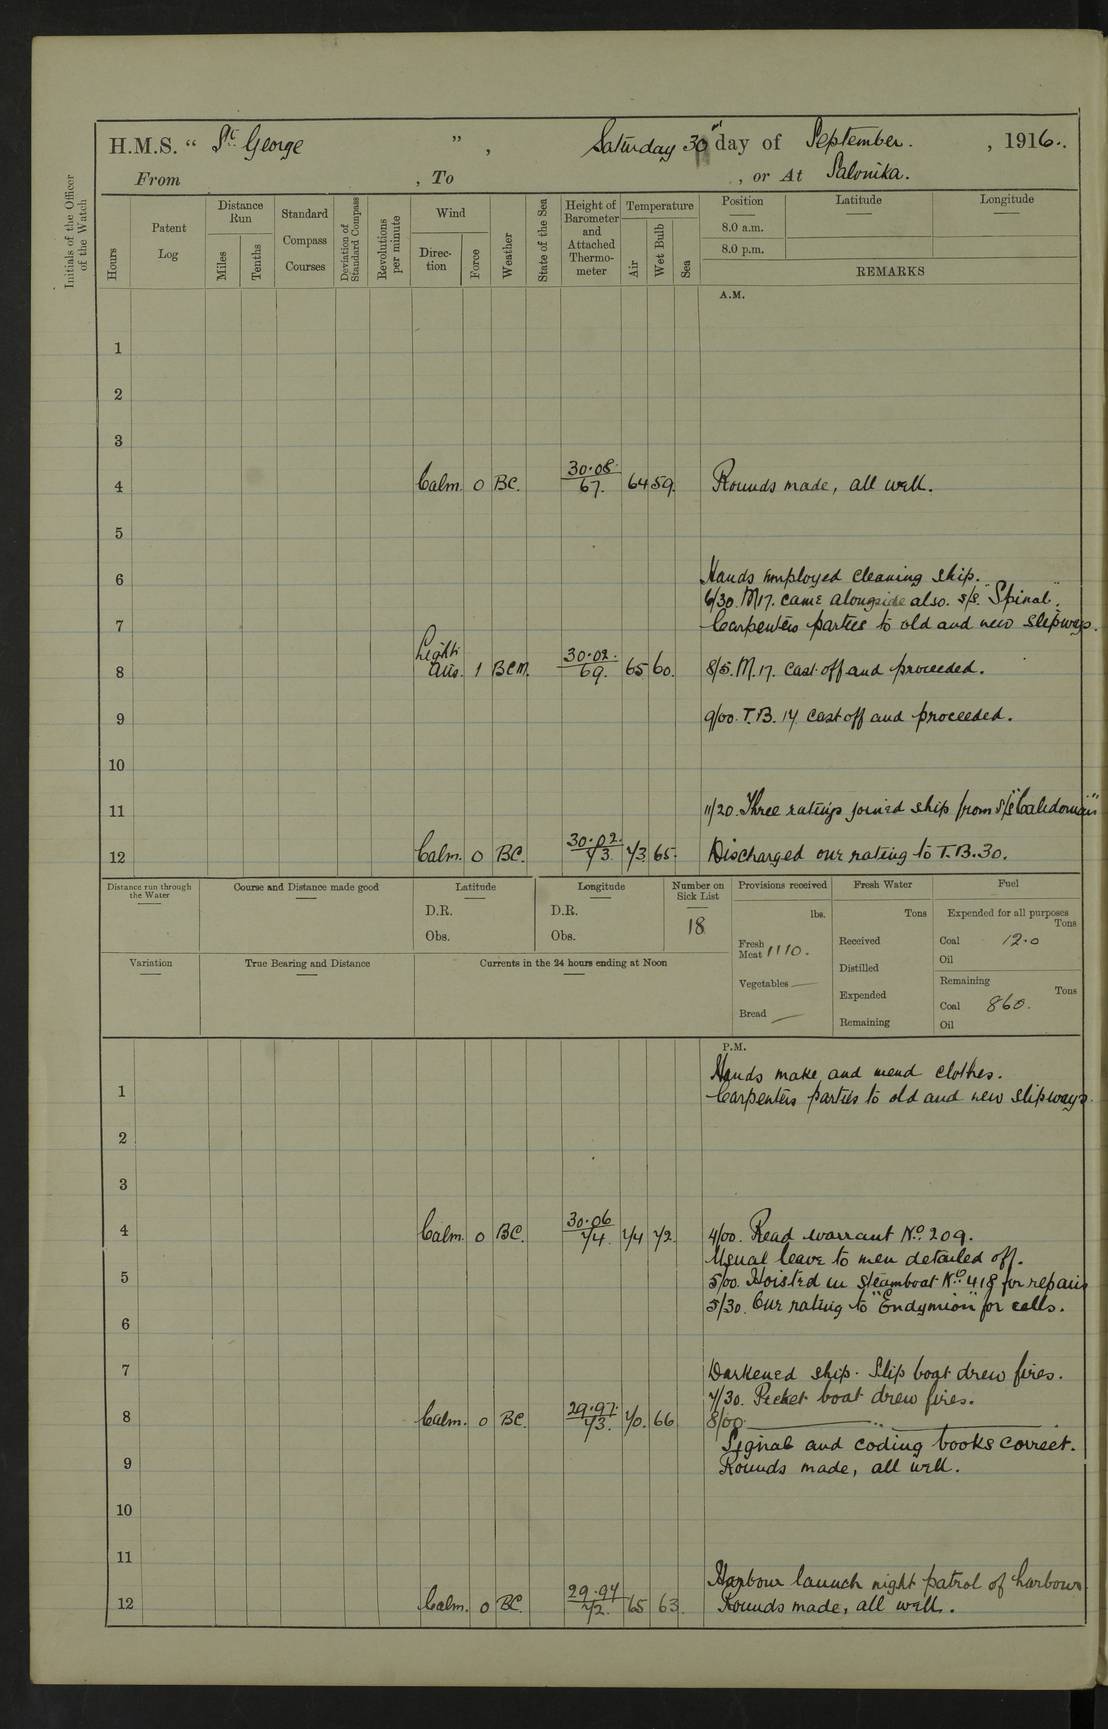 H.M.S. “ St. George ” , Saturday 30th day of September. , 1916.
From , To , or At Salonika.
Initials of the Officer of the Watch
Hours
Patent Log
Distance Run
Miles
Tenths
Standard Compass Courses
Deviation of Standard Compass
Revolutions per minute
Wind
Direc-tion
Force
Weather
State of the Sea
Height of Barometer and Attached Thermo-meter
Temperature
Air
Wet Bulb
Sea
Position
8.0 a.m.
8.0 p.m.
Latitude
Longitude
REMARKS
A.M.
1
2
3
4 Calm. 0 BC. 30.08. 67. 64 59. Rounds made, all well.
5
6 Hands employed cleaning ship.
6/30. M17. came alongside also. s/s. "Spinal".
7 Carpenters parties to old and new slipways.
8 Light airs. 1 BCM. 30.02. 69. 65 60. 8/5. M.17. cast off and proceeded.
9 9/00. T.B. 17 cast off and proceeded.
10
11 11/20. Three ratings joined ship from s/s "Caledonian"
12 Calm. 0 BC. 30.02. 73. 73 65. Discharged one rating to T.B.30.
Distance run through the Water
Course and Distance made good
Latitude
D.R.
Obs.
Longitude
D.R.
Obs.
Number on Sick List
18
Provisions received
lbs.
Fresh Meat 1110.
Vegetables —
Bread —
Fresh Water
Tons
Received
Distilled
Expended
Remaining
Fuel
Expended for all purposes
Tons
Coal 12.0
Oil
Remaining
Tons
Coal 860.
Oil
Variation
True Bearing and Distance
Currents in the 24 hours ending at Noon
P.M.
Hands make and mend clothes.
1 Carpenters parties to old and new slipways.
2
3
4 Calm. 0 BC. 30.06 74. 74 72. 4/00. Read warrant No. 209.
Usual leave to men detailed off.
5 5/00. Hoisted in steamboat No. 418 for repairs
5/30. One rating to "Endymion" for cells.
6
7 Darkened ship. Slip boat drew fires.
7/30. Picket boat drew fires.
8 Calm. 0 BC. 29.97. 73. 70. 66 8/00.
Signal and coding books correct.
9 Rounds made, all well.
10
11
Harbour launch night patrol of harbour.
12 Calm. 0 BC. 29.97 72. 65 63. Rounds made, all well.